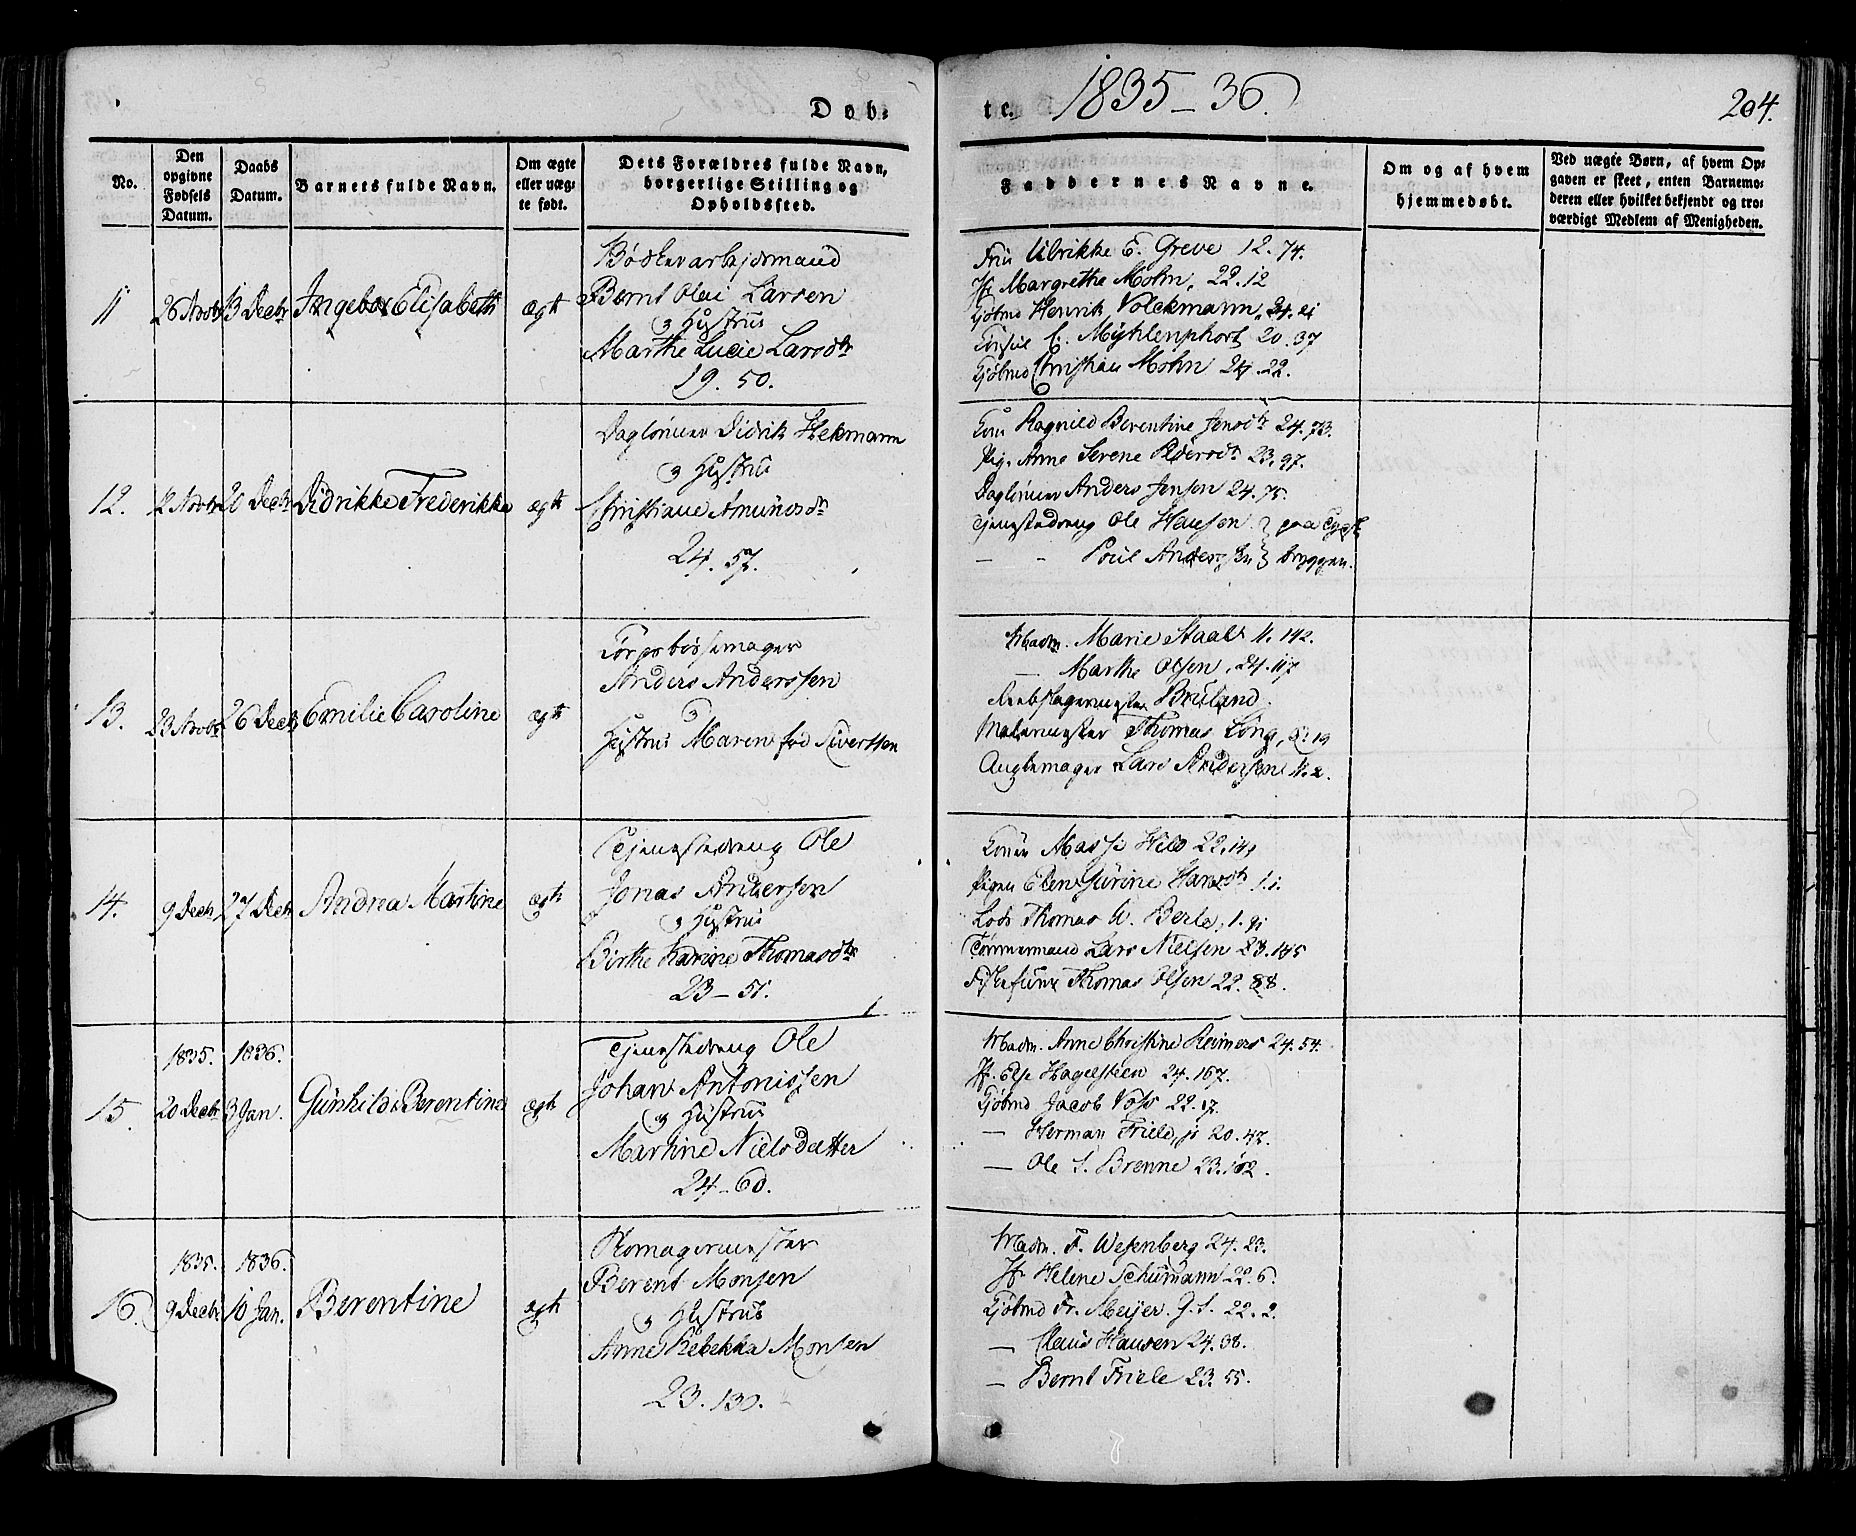 Døb-
te. 1835-36.
204.
No.
Den opgivne Fødsels Datum.
Daabs Datum.
Barnets fulde Navn.
Om ægte eller uæg-te født.
Dets Forældres fulde Navn, borgerlige Stilling og Opholdssted.
Faddernes Navne.
Om og af hvem hjemmedøbt.
Ved uægte Børn, af hvem Op-gaven er skeet, enten Barnemo-deren eller hvilket bekjendt og tro-værdigt Medlem af Menigheden.
11 26 Novbr 13 Decbr Ingebor Elisabeth ægte
Bødkerarbejdsmand
Bernt Olai Larsen
& Hustrue
Marthe Lucie Larsdtr
19. 50.
Frue Ulrikke E. Greve 12. 74.
Jfr Margrethe Mohn, 22. 12
Kjøbmd Henrik Volckmann, 24. 21
Consul C. Myhlenphort 20. 37
Kjøbmd Christian Mohn 24. 22.
12. 12 Novbr 20 Decbr Didrikke Frederikke ægte
Dagleiner Didrik Hekmann
& Hustrue
Christiane Amundsdtr
24. 57.
Kone Ragnild Berentine Jensdtr 24. 73.
Pig. Anne Serene Pedersdtr 23. 97.
Dagleiner Anders Jensen 24. 75.
Tjenestedreng Ole Hansen } paa Tydske
— - Poul Anderssen } bryggen.
13. 23 Novbr 26 Decbr Emilie Caroline ægte
Corpsbøssemager
Anders Anderssen
&
Hustrue Maren fød Sivertsen
Madm. Marie Staabs 11. 142.
— Marthe Olsen, 24. 117
Reebslagermester Bruland,
Malermester Thomas Long, 8. 19
Auglemager Lars Andersen 11. 2.
14. 9 Decbr 27 Decbr Andrea Martine ægte
Tjenestedreng Ole
Jonas Andersen
& Hustrue
Birthe Karine Thomasdtr
23-51.
Konen Massi Hild 22. 141
Pigen Elen Surine Hansdtr 1. 1.
Lods Thomas W. Berle, 1. 91
Tømmermand Lars Nielsen 23. 145
Thomas Olsen 22. 88.
15. 1835. 20 Decbr 1836. 3 Jan. Gunhilda Berentine ægte
Tjenestedreng Ole
Johan Antonissen
& Hustrue
Martine Nielsdatter
24-60.
Madm. Anne Christine Reimers 24. 54.
Jfr. Else Hagelstien 24. 167.
Kjøbmd Jacob Voss 22. 17.
— Herman Friele, jr 20. 47.
— Ole S. Brenne 23. 102.
16. 1835. 9 Decbr 1836. 10 Jan. Berentine ægte
Skomagermester
Berent Monsen
& Hustrue
Anne Rebekka Monsen
23. 130.
Madm. F. Wesenberg 24. 23.
Jfr Heline Schumann 22. 6.
Kjøbmd Fr. Meijer. G. S. 22. 2.
— Claus Hansen 24. 38.
— Bernt Friele 23. 55.